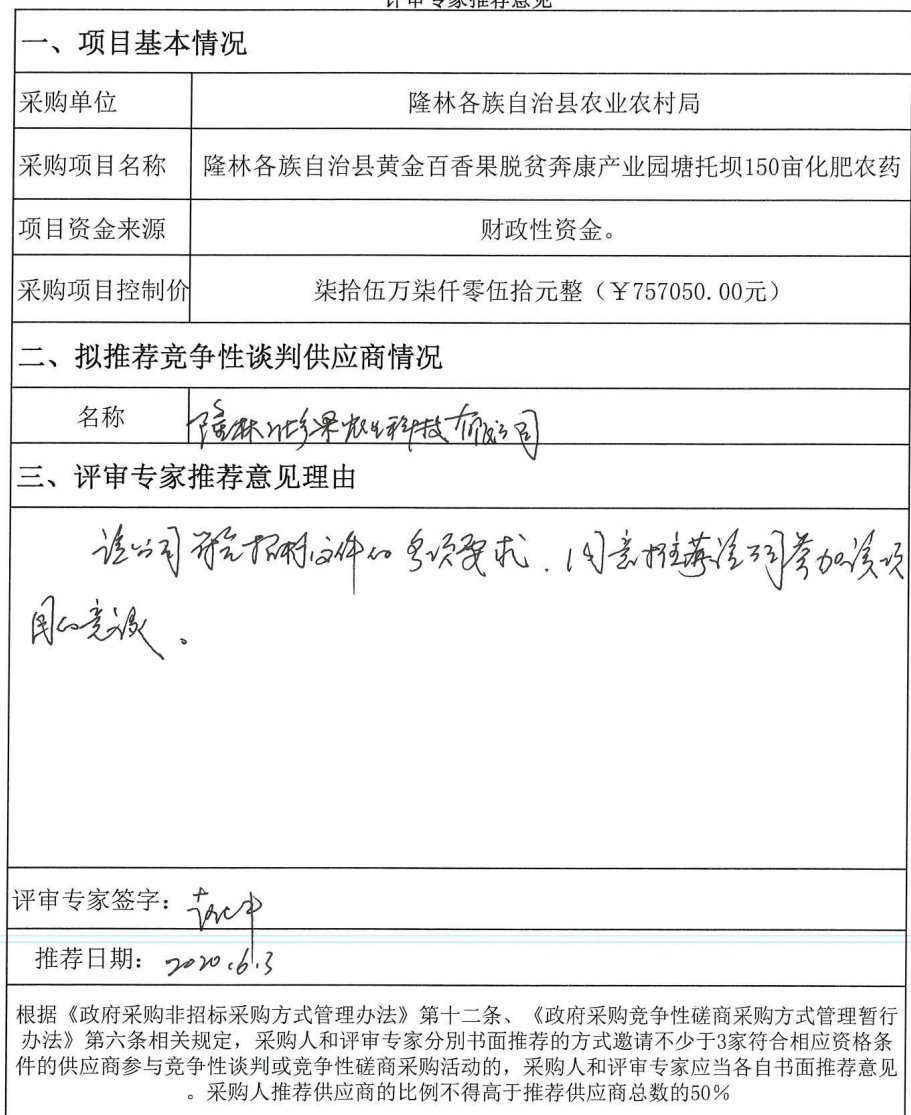 评审专家推荐意见
一、项目基本情况
采购单位 隆林各族自治县农业农村局
采购项目名称 隆林各族自治县黄金百香果脱贫奔康产业园塘托坝150亩化肥农药
项目资金来源 财政性资金。
采购项目控制价 柒拾伍万柒仟零伍拾元整（￥757050.00元）
二、拟推荐竞争性谈判供应商情况
名称 隆林 果农业科技有限公司
三、评审专家推荐意见理由
该公司符合招标文件的各项要求．同意推荐该公司参加该项
目的竞谈。
评审专家签字：
推荐日期：2020.6.3
根据《政府采购非招标采购方式管理办法》第十二条、《政府采购竞争性磋商采购方式管理暂行
办法》第六条相关规定，采购人和评审专家分别书面推荐的方式邀请不少于3家符合相应资格条
件的供应商参与竞争性谈判或竞争性磋商采购活动的，采购人和评审专家应当各自书面推荐意见
。采购人推荐供应商的比例不得高于推荐供应商总数的50%